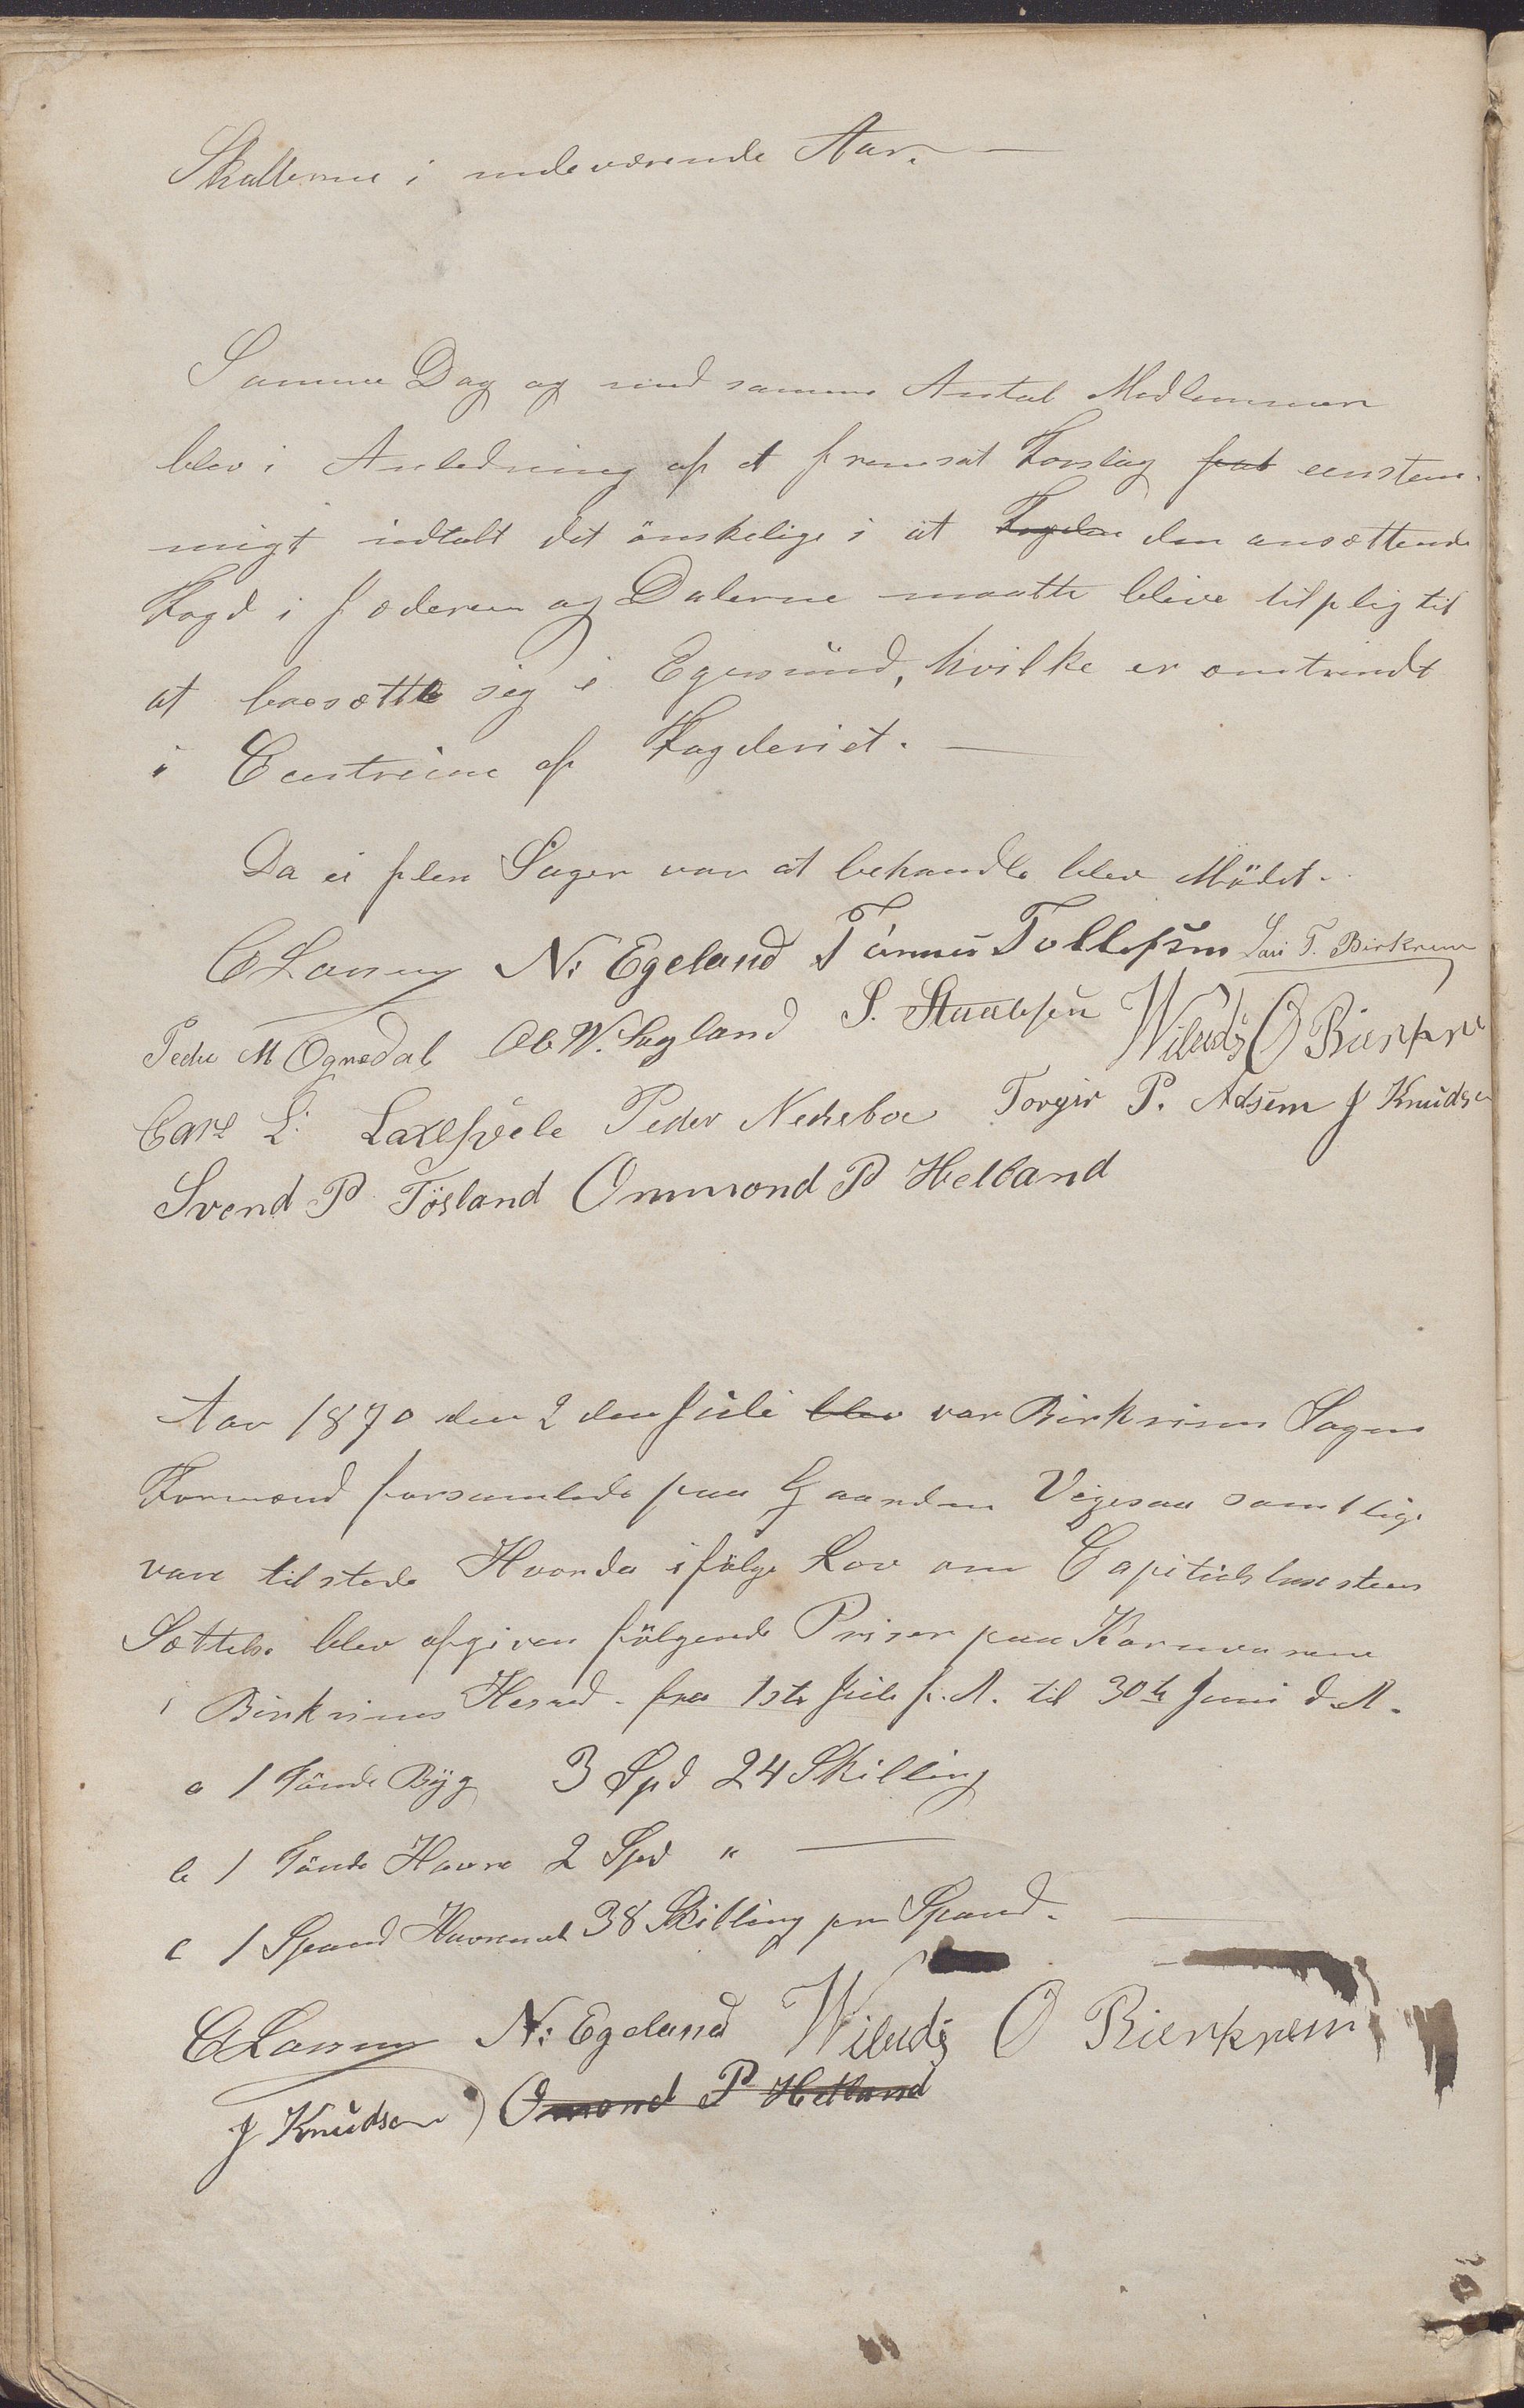 Skatterne i indeværende Aar. —
Samme Dag og med samme Antal Medlemmer
blev i Anledning af et fremsat Forslag eenstem-
migt udtalt det önskelige i at Fogden den ansættende
Fogd i Jæderen og Dalerne maatte blive tilpligtit
at bosætte sig i Egersund, hvilke er omtrindt
i Centrum af Fogderiet. —
Da ei flere Sager var at behandle blev Mödet.
N: Egeland Tönnes Tollefsen T. Birkrem
Peder M Ognedal Ole W. Lagland S. Staalesen O Bierkre
Carl L. Laxesvele Peder Nedrebøe Torgier P. Adsem J Knudsen
Svend P Tösland Ommond P Helland
Aar 1870 den 2 den Juli blev var Birkrims Sogns
Formænd forsamlede paa Gaarden Vigesaa samtlige
vare tilstede Hvorda ifölge Lov om Capitels
Sættelse blev afgiven fölgende Priser paa Kornvarene
i Birkrims Herred. fra 1ste Juli f. A. til 30te Juni d. A.
a 1 Tönde Byg 3 Spd 24 Skilling
b 1 Tönde Havre 2 Spd " —
c 1 Spand Havremel 38 Skilling pr Spand. —
N: Egeland O Bierkrem
J Knudsen Omond P Hetland